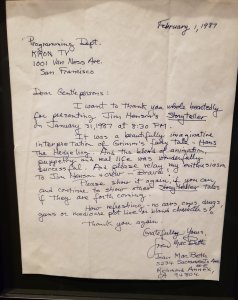 February 1, 1987
Programming Dept.
KRON TV
1001 Van Ness Ave.
San Francisco
Dear Gentlepersons:
I want to thank you whole heartedly
for presenting Jim Henson's Storyteller
on January 31, 1987 at 8:30 PM.
It was a beautifully imaginative
interpretation of Grimm's fairy tale - Hans
The Hedgehog. And the blend of animation,
puppetry and real life was wonderfully
successful. Do please relay my enthusiasm
to Jim Henson & crew - Bravo!
Please show it again, if you can,
and continue to show other Storyteller tales
if they are forth coming.
How refreshing - no cars, cops, drugs,
guns or medicine put live on blond cheerful
Thank you again.
Gratefully Yours,
Joan Mac Beth
Joan MacBeth
5234 Sacramento Ave
Richmond Annex,
CA 94804